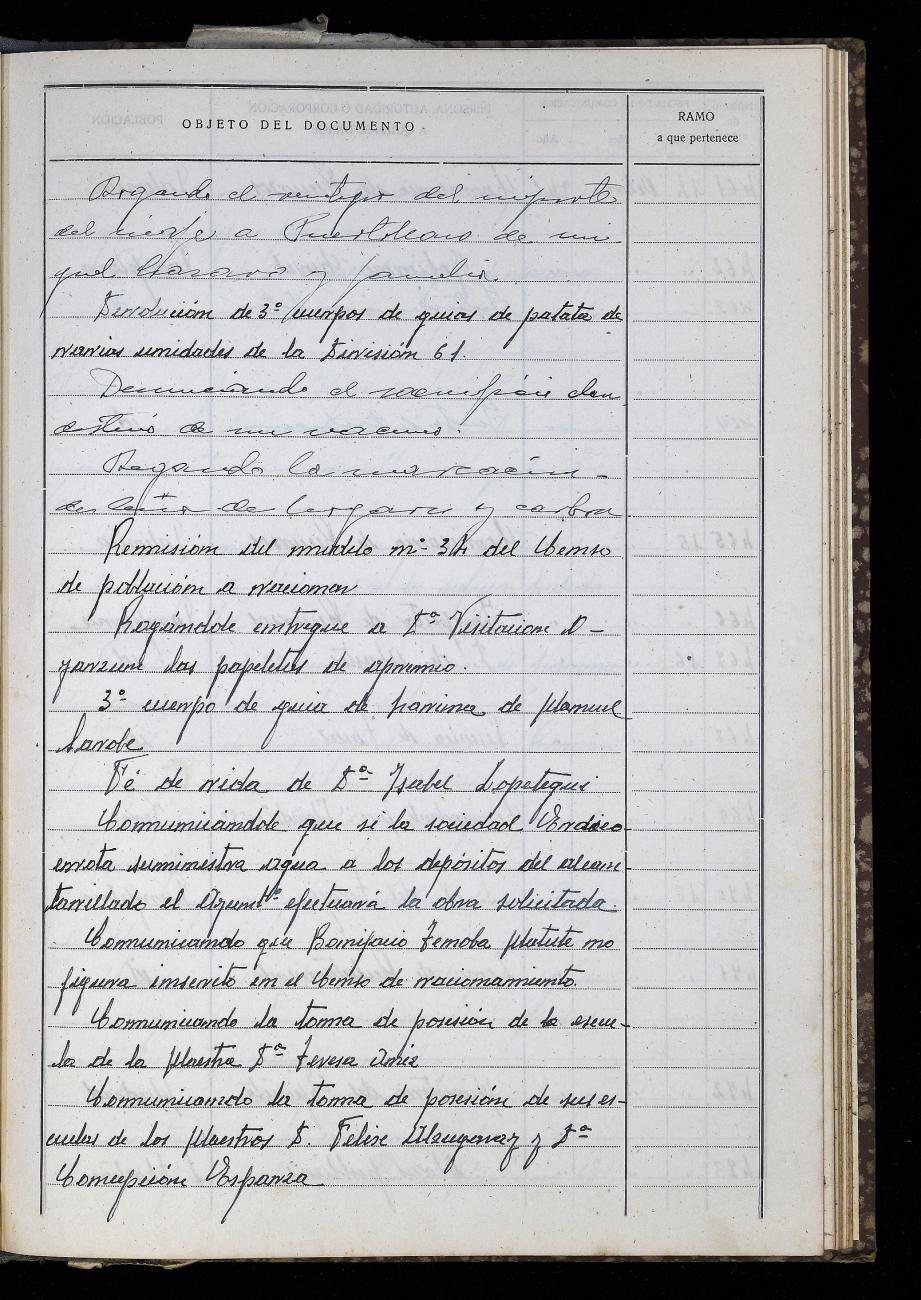 OBJETO DEL DOCUMENTO
RAMO
a que pertenece
Rogando el reintegro del importe
del viaje a Puertollano de Mi
guel y familia
Devolución de 3º cuerpos de guias de patata de
varias unidades de la División 61.
Denunciando el sacrificio clan
destino de un vacuno.
Rogando la
de leña de y carbon
Remisión del modelo nº 34 del Censo
de población a racionar
Rogándole entregue a Dª Visitacion O-
yarzun las papeletas de apremio.
3º cuerpo de guia de harina de Manuel
Sarobe
Fé de vida de Dª Ysabel Lopetegui
Comunicándole que si la sociedad Endaco-
errota suministra agua a los depósitos del alcan
tarillado el Ayuntº efectuará la obra solicitada.
Comunicando que Bonifacio Matute no
figura inscrito en el Censo de racionamiento.
Comunicando la toma de posesión de la escue-
la de la Maestra Dª Teresa
Comunicando la toma de posesión de sus es-
cuelas de los Maestros D. Felix y Dª
Concepción Esparza